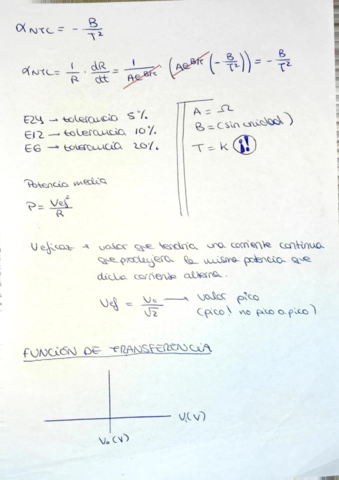 αNTC = - B/T²
αNTC = 1/R · dR/dt = 1/Ae^B/T (Ae^B/T (- B/T²)) = - B/T²
E24 → tolerancia 5%
E12 → tolerancia 10%
E6 → tolerancia 20%
A = Ω
B = (sin unidad)
T = K (!)
Potencia media
P = Vef²/R
Veficaz → valor que tendría una corriente continua
que produjera la misma potencia que
dicha corriente alterna.
Vef = Vo/√2 → valor pico
(pico! no pico a pico)
FUNCIÓN DE TRANSFERENCIA
Vi(V)
Vo(V)